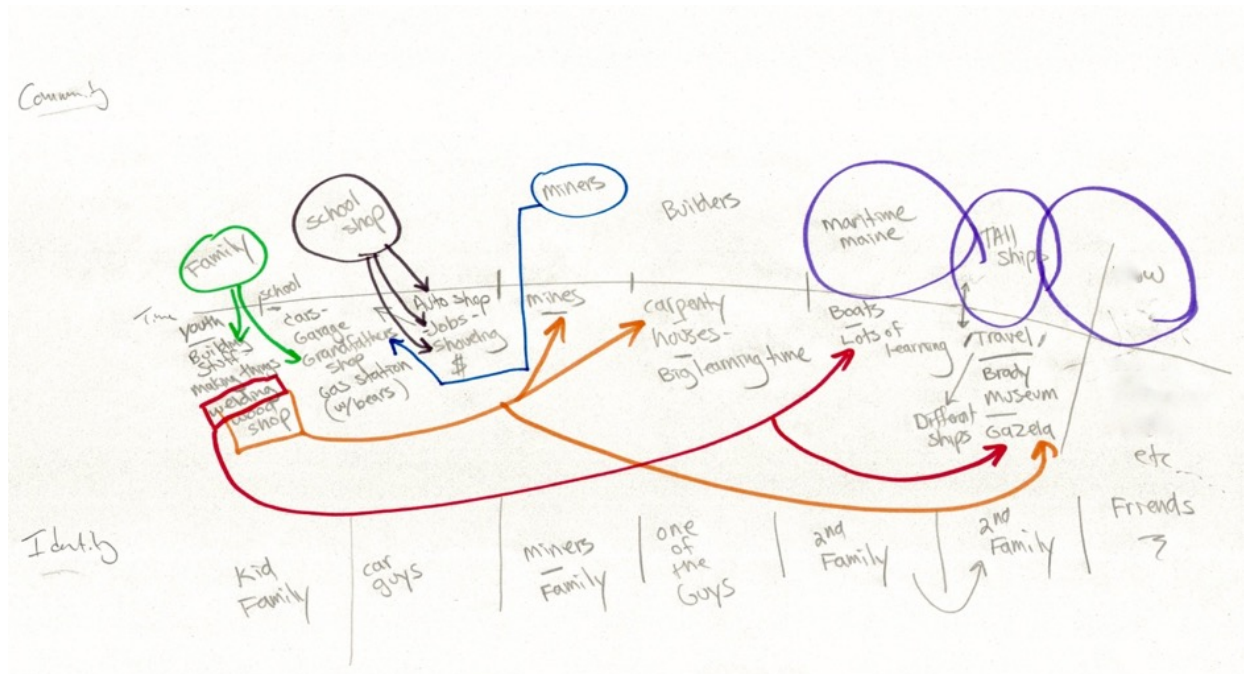 Community
Family
school
shop
miners
Builders
maritime
maine
TAll
ships
w
Time
school
youth
Building
stuff
making things
welding
wood
shop
cars-
Garage
Grandfathers
shop
Gas station
(w/bears)
Auto shop
-Jobs-
shoveling
$
mines
carpenty
houses-
Big learning time
Boats
Lots of
learning
Travel
Brady
museum
Gazela
Different
ships
etc...
Identity
Kid
Family
car
guys
miners
Family
one
of
the
Guys
2nd
Family
2nd
Family
Friends